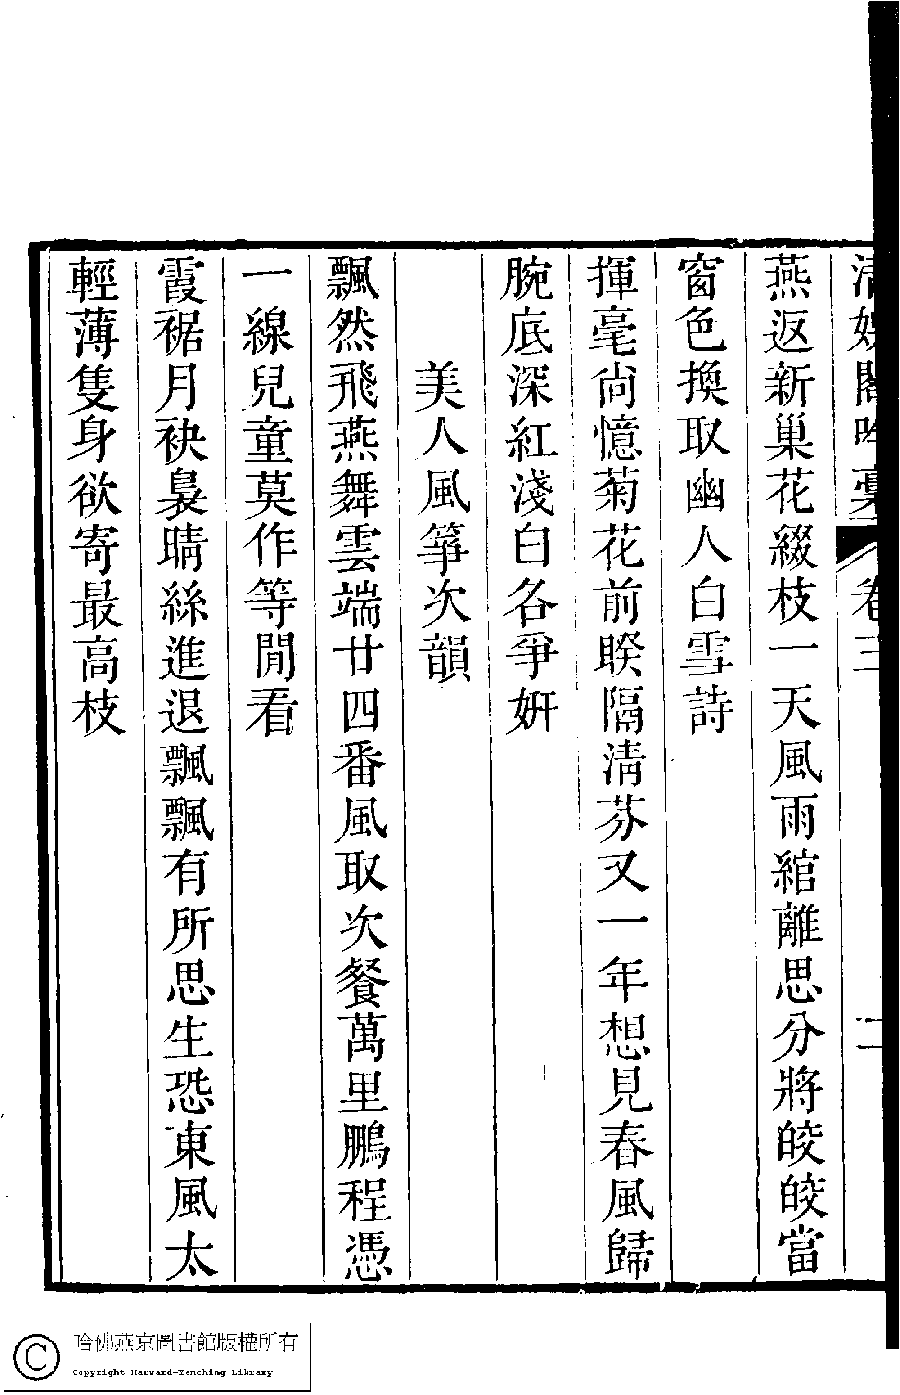 清娛閣吟稾 卷三 二
燕返新巢花綴枝一天風雨綰離思分將皎皎當
窗色換取幽人白雪詩
揮毫尙憶菊花前睽隔清芬又一年想見春風歸
腕底深紅淺白各爭妍
美人風箏次韻
飄然飛燕舞雲端廿四番風取次餐萬里鵬程憑
一線兒童莫作等閒看
霞裾月袂裊晴絲進退飄飄有所思生恐東風太
輕薄隻身欲寄最高枝
哈佛燕京圖書館版權所有
Copyright Harvard-Yenching Library